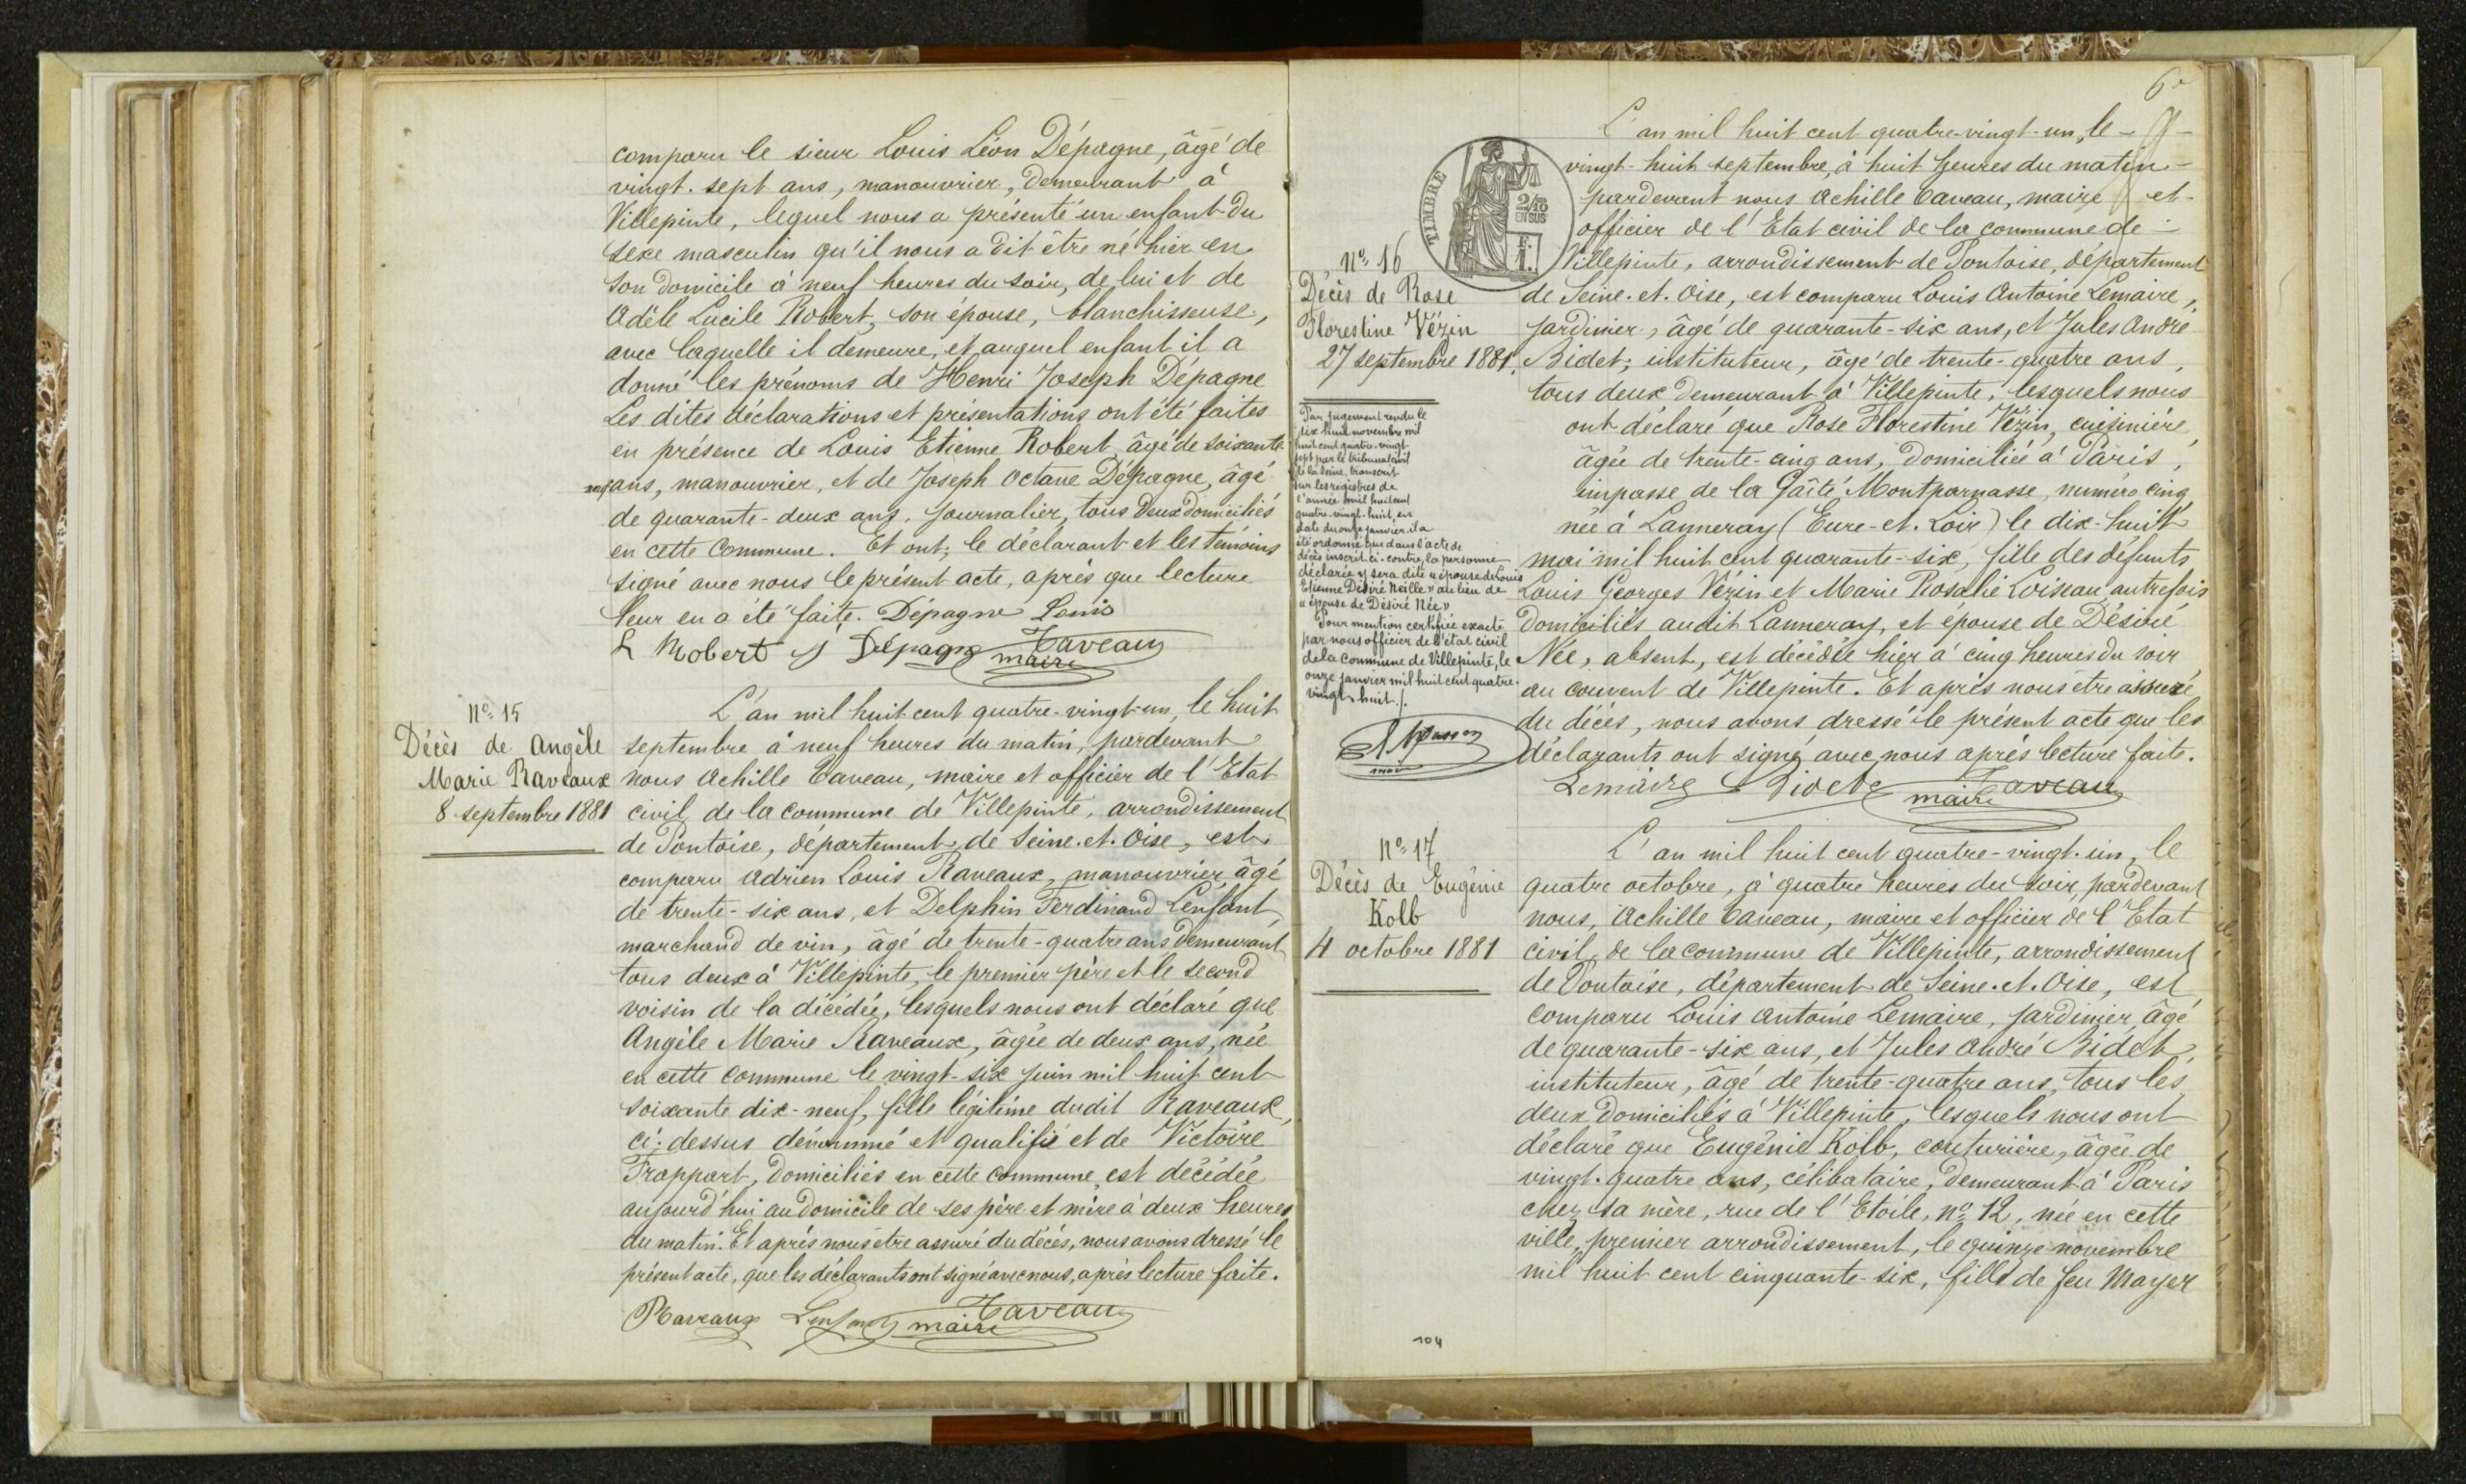 comparu le sieur Louis Léon Dépagne, âgé de
vingt-sept ans, manouvrier, demeurant à
Villepinte, lequel nous a présenté un enfant du
sexe masculin qu'il nous a dit être né hier en
son domicile à neuf heures du soir, de lui et de
Adèle Lucile Robert, son épouse, blanchisseuse,
avec laquelle il demeure, et auquel enfant il a
donné les prénoms de Henri Joseph Dépagne
Les dites déclarations et présentations ont été faites
en présence de Louis Etienne Robert, âgé de soixante-
ans, manouvrier, et de Joseph Octave Dépagne, âgé
de quarante-deux ans, journalier, tous deux domiciliés
en cette commune. Et ont, le déclarant et les témoins
signé avec nous le présent acte, après que lecture
leur en a été faite. Dépagne Louis
L Robert J Dépagne Caveau
maire
N° 15
Décès de Angèle
Marie Raveaux
8 septembre 1881
L'an mil huit cent quatre-vingt-un, le huit
septembre à neuf heures du matin, pardevant
nous Achille Caveau, maire et officier de l'Etat
civil de la commune de Villepinte, arrondissement
de Pontoise, département de Seine-et-Oise, est
comparu Adrien Louis Raveaux, manouvrier, âgé
de trente-six ans, et Delphin Ferdinand Lenfant,
marchand de vin, âgé de trente-quatre ans demeurant
tous deux à Villepinte, le premier père et le second
voisin de la décédée, lesquels nous ont déclaré que
Angèle Marie Raveaux, âgée de deux ans, née
en cette commune le vingt-six juin mil huit cent
soixante dix-neuf, fille légitime dudit Raveaux,
ci-dessus dénommé et qualifié et de Victoire
Frappart, domiciliés en cette commune, est décédée
aujourd'hui au domicile de ses père et mère à deux heures
du matin. Et après nous être assuré du décès, nous avons dressé le
présent acte, que les déclarants ont signé avec nous, après lecture faite.
Raveaux Lenfant Caveau
maire
6
TIMBRE
2/10
EN SUS
N° 16
Décès de Rose
Florestine Vézin
27 septembre 1881.
Par jugement rendu le
dix huit novembre mil
huit cent quatre-vingt
sept par le tribunal civil
de la Seine, transcrit
sur les registres de
l'année mil huit cent
quatre-vingt-huit, en
date du onze janvier, il a
été ordonné que dans l'acte de
décès inscrit ci-contre, la personne
déclarée y sera dite « épouse de Louis
Etienne Désiré Neille » au lieu de
« épouse de Désiré Née »
Pour mention certifiée exacte
par nous officier de l'état civil
de la commune de Villepinte, le
onze janvier mil huit cent quatre-
vingt-huit./.
maire
L'an mil huit cent quatre-vingt-un, le -
vingt-huit septembre, à huit heures du matin -
pardevant nous Achille Caveau, maire et -
officier de l'Etat civil de la commune de -
Villepinte, arrondissement de Pontoise, département
de Seine-et-Oise, est comparu Louis Antoine Lemaire,
jardinier, âgé de quarante-six ans, et Jules André
Bidet, instituteur, âgé de trente-quatre ans,
tous deux demeurant à Villepinte, lesquels nous
ont déclaré que Rose Florestine Vézin, cuisinière,
âgée de trente-cinq ans, domiciliée à Paris,
impasse de la Gaîté Montparnasse, numéro cinq
née à Lanneray (Eure-et-Loir) le dix-huit
mai mil huit cent quarante-six, fille des défunts
Louis Georges Vézin et Marie Rosalie Loiseau autrefois
domiciliés audit Lanneray, et épouse de Désiré
Née, absent, est décédée hier à cinq heures du soir
au couvent de Villepinte. Et après nous être assuré
du décès, nous avons dressé le présent acte que les
déclarants ont signé avec nous après lecture faite.
Lemaire Bidet Caveau
maire
N° 17
Décès de Eugénie
Kolb
4 octobre 1881
L'an mil huit cent quatre-vingt-un, le
quatre octobre, à quatre heures du soir, pardevant
nous, Achille Caveau, maire et officier de l'Etat
civil de la commune de Villepinte, arrondissement
de Pontoise, département de Seine-et-Oise, est
comparu Louis Antoine Lemaire, jardinier, âgé
de quarante-six ans, et Jules André Bidet,
instituteur, âgé de trente-quatre ans, tous les
deux domiciliés à Villepinte, lesquels nous ont
déclaré que Eugénie Kolb, couturière, âgée de
vingt-quatre ans, célibataire, demeurant à Paris
chez sa mère, rue de l'Etoile, n° 12, née en cette
ville, premier arrondissement, le quinze novembre
mil huit cent cinquante-six, fille de feu Mayer
104